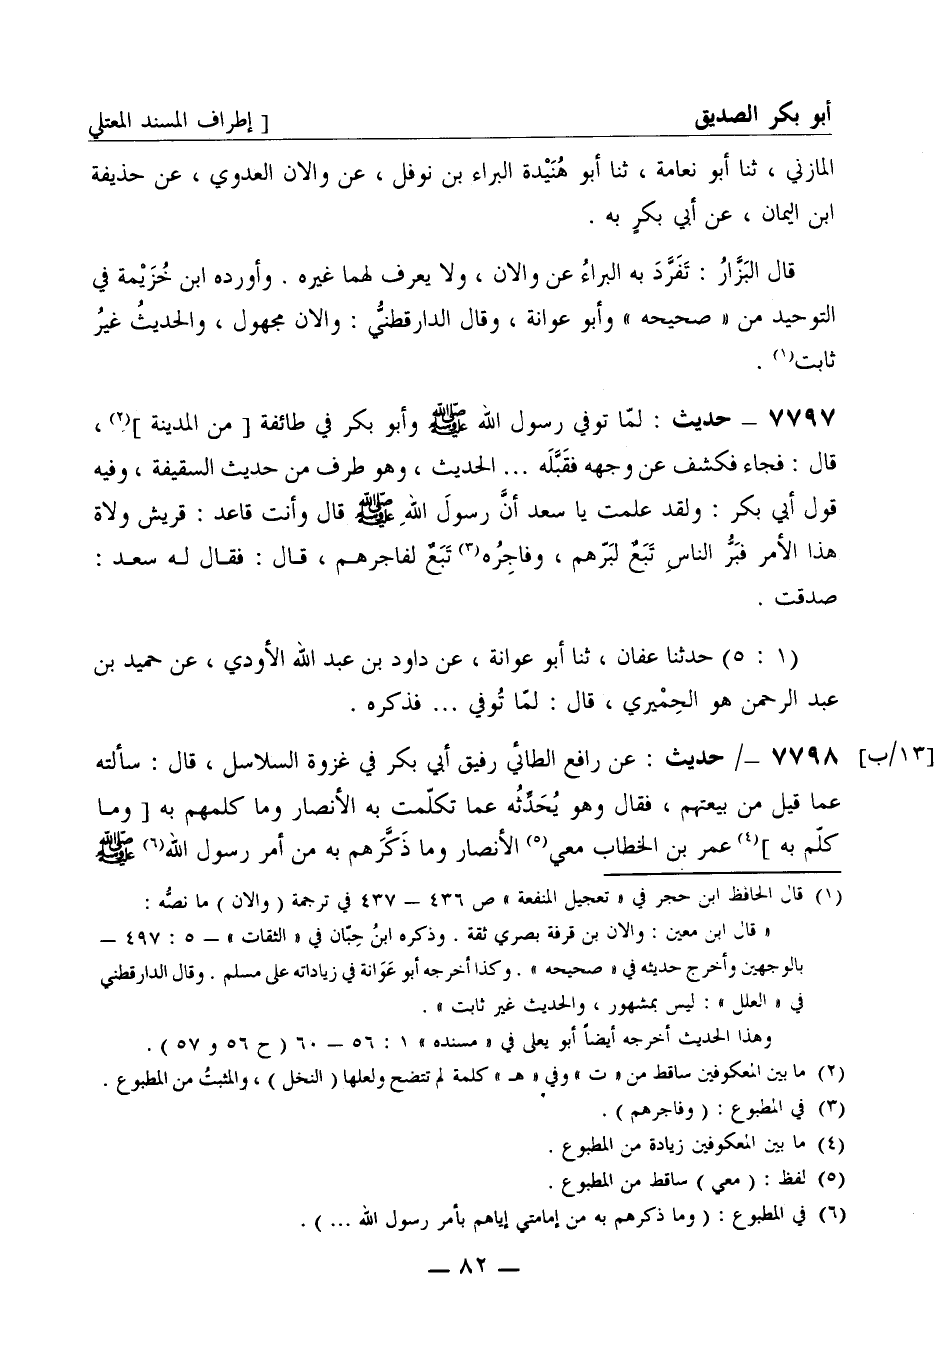 أبو بكر الصديق [ إطراف المسند المعتلي
المازني ، ثنا أبو نعامة ، ثنا أبو هُنَيْدة البراء بن نوفل ، عن والان العدوي ، عن حذيفة
ابن اليمان ، عن أبي بكرٍ به .
قال البَزَّارُ : تَفَرَّدَ به البراءُ عن والان ، ولا يعرف لهما غيره . وأورده ابن خُزَيْمة في
التوحيد من « صحيحه » وأبو عوانة ، وقال الدارقطنيُّ : والان مجهول ، والحديثُ غيرُ
ثابت(١) .
٧٧٩٧ – حديث : لمّا توفي رسول الله ﷺ وأبو بكر في طائفة [ من المدينة ](٢) ،
قال : فجاء فكشف عن وجهه فقَبَّلَه ... الحديث ، وهو طرف من حديث السقيفة ، وفيه
قول أبي بكر : ولقد علمت يا سعد أنَّ رسولَ اللهِ ﷺ قال وأنت قاعد : قريش ولاة
هذا الأمر فبَرُّ الناسِ تَبَعٌ لبَرّهم ، وفاجِرُه(٣) تَبَعٌ لفاجرهـم ، قـال : فقـال لـه سعـد :
صدقت .
(١ : ٥) حدثنا عفان ، ثنا أبو عوانة ، عن داود بن عبد الله الأودي ، عن حميد بن
عبد الرحمن هو الحِمْيري ، قال : لمّا تُوفي ... فذكره .
٧٧٩٨ –/ حديث : عن رافع الطائي رفيق أبي بكر في غزوة السلاسل ، قال : سألته [١٣/ب]
عما قيل من بيعتهم ، فقال وهو يُحَدِّثُه عما تكلّمت به الأنصار وما كلمهم به [ ومـا
كلّم به ](٤) عمر بن الخطاب معي(٥) الأنصار وما ذَكَّرهم به من أمر رسول الله(٦) ﷺ
(١) قال الحافظ ابن حجر في « تعجيل المنفعة » ص ٤٣٦ – ٤٣٧ في ترجمة ( والان ) ما نصُّه :
« قال ابن معين : والان بن قرفة بصري ثقة . وذكره ابنُ حِبّان في « الثقات » – ٥ : ٤٩٧ –
بالوجهين وأخرج حديثه في « صحيحه » . وكذا أخرجه أبو عَوَانة في زياداته على مسلم . وقال الدارقطني
في « العلل » : ليس بمشهور ، والحديث غير ثابت » .
وهذا الحديث أخرجه أيضاً أبو يعلى في « مسنده » ١ : ٥٦ – ٦٠ ( ح ٥٦ و ٥٧ ) .
(٢) ما بين المعكوفين ساقط من « ت » وفي « هـ » كلمة لم تتضح ولعلها ( النخل ) ، والمثبتُ من المطبوع .
(٣) في المطبوع : ( وفاجرهم ) .
(٤) ما بين المعكوفين زيادة من المطبوع .
(٥) لفظ : ( معي ) ساقط من المطبوع .
(٦) في المطبوع : ( وما ذكرهم به من إمامتي إياهم بأمر رسول الله ... ) .
– ٨٢ –